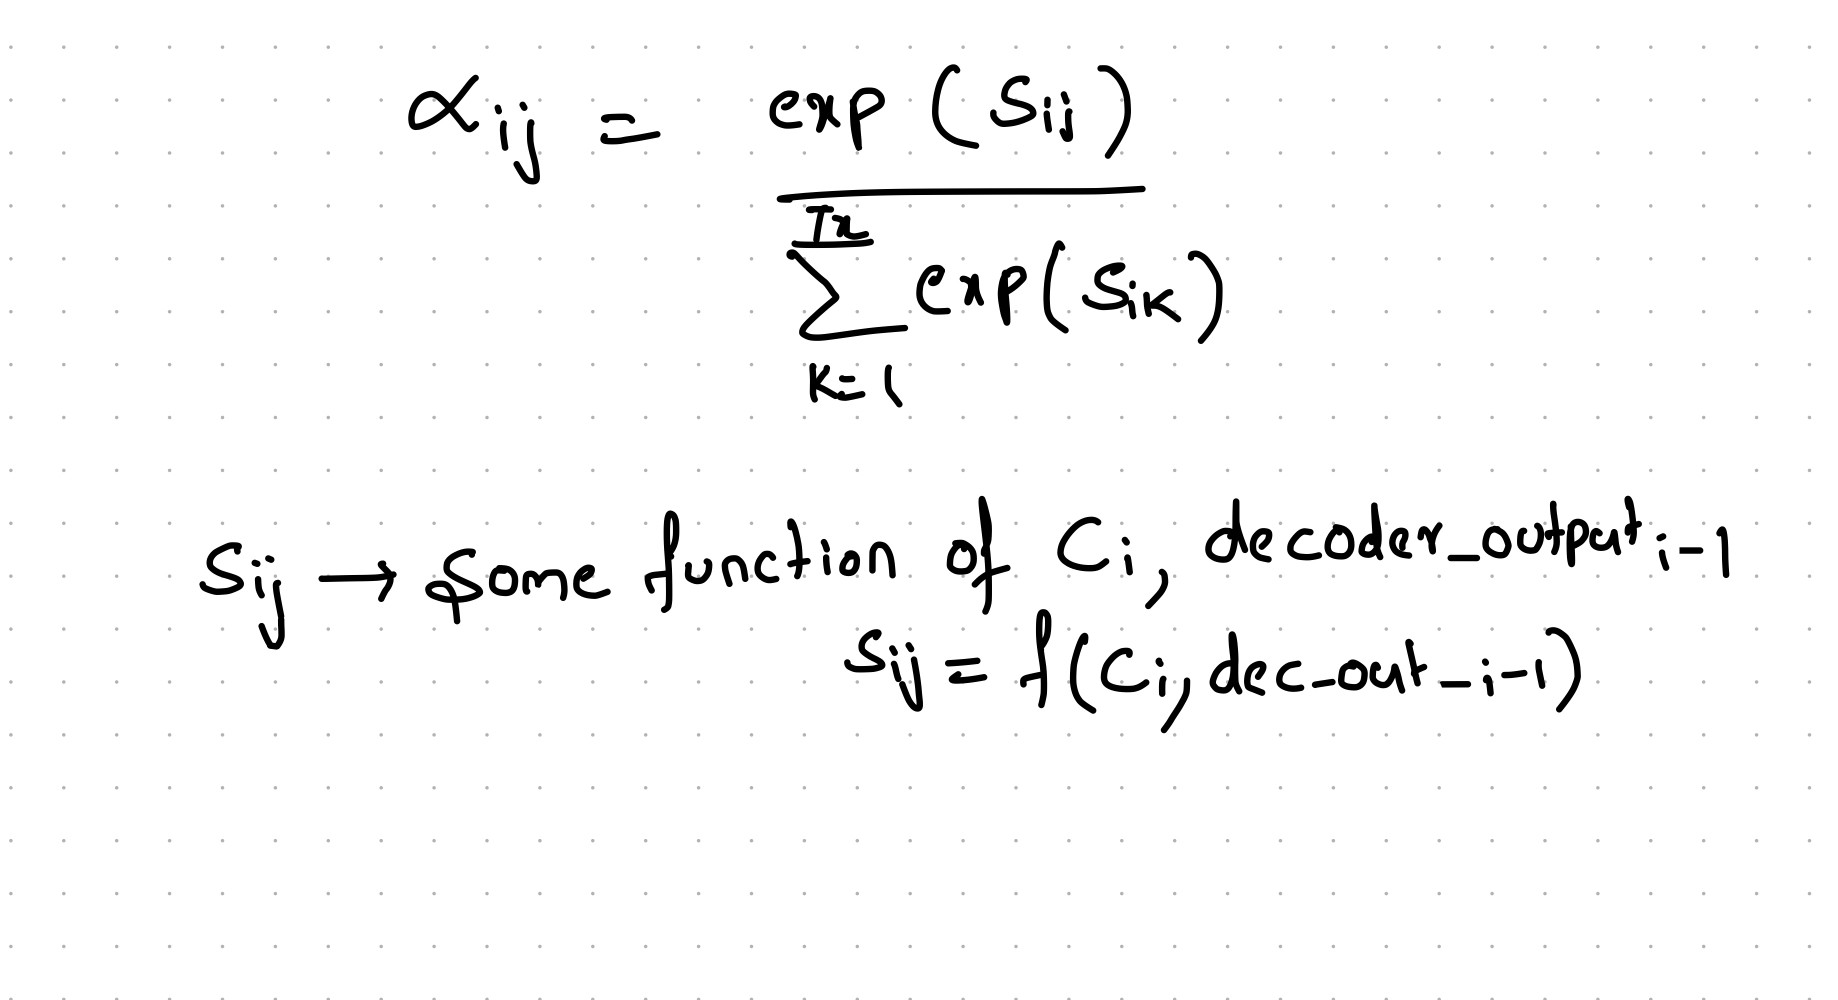 αij = exp (Sij)
Tx
∑ exp(Sik)
K=1
Sij → Some function of Ci, decoder_output i-1
Sij = f(Ci, dec_out_i-1)